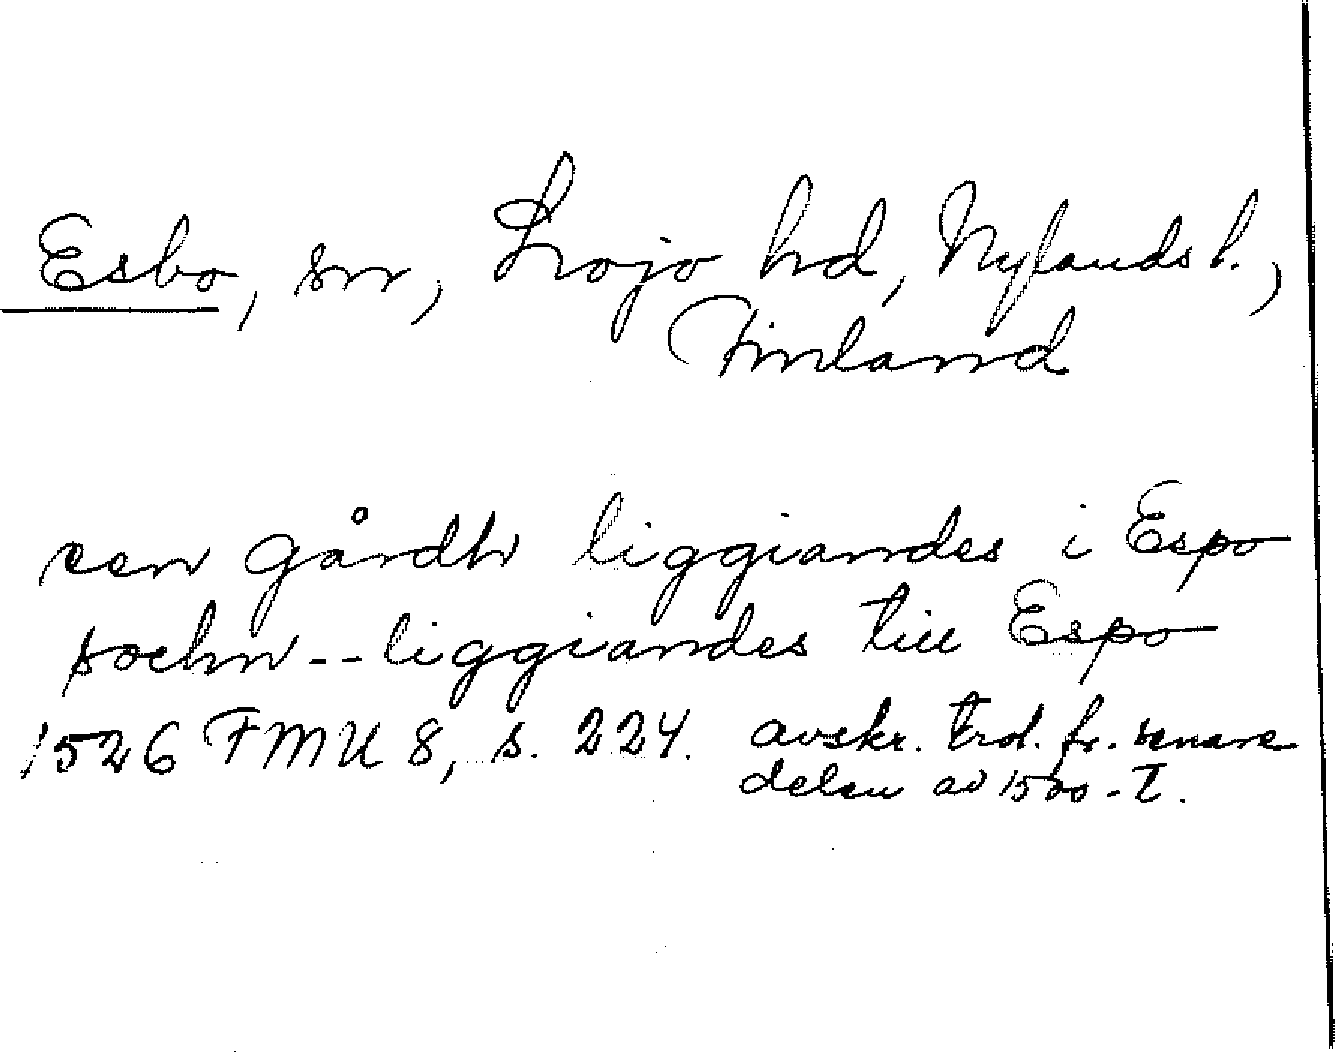 Esbo, sn, Lojo hd, Nylands l.,
Finland
een gårdh liggiandes i Espo
sochn -- liggiandes till Espo
1526 FMU 8, s. 224. avskr. trol. fr. senare
delen av 1500-t.